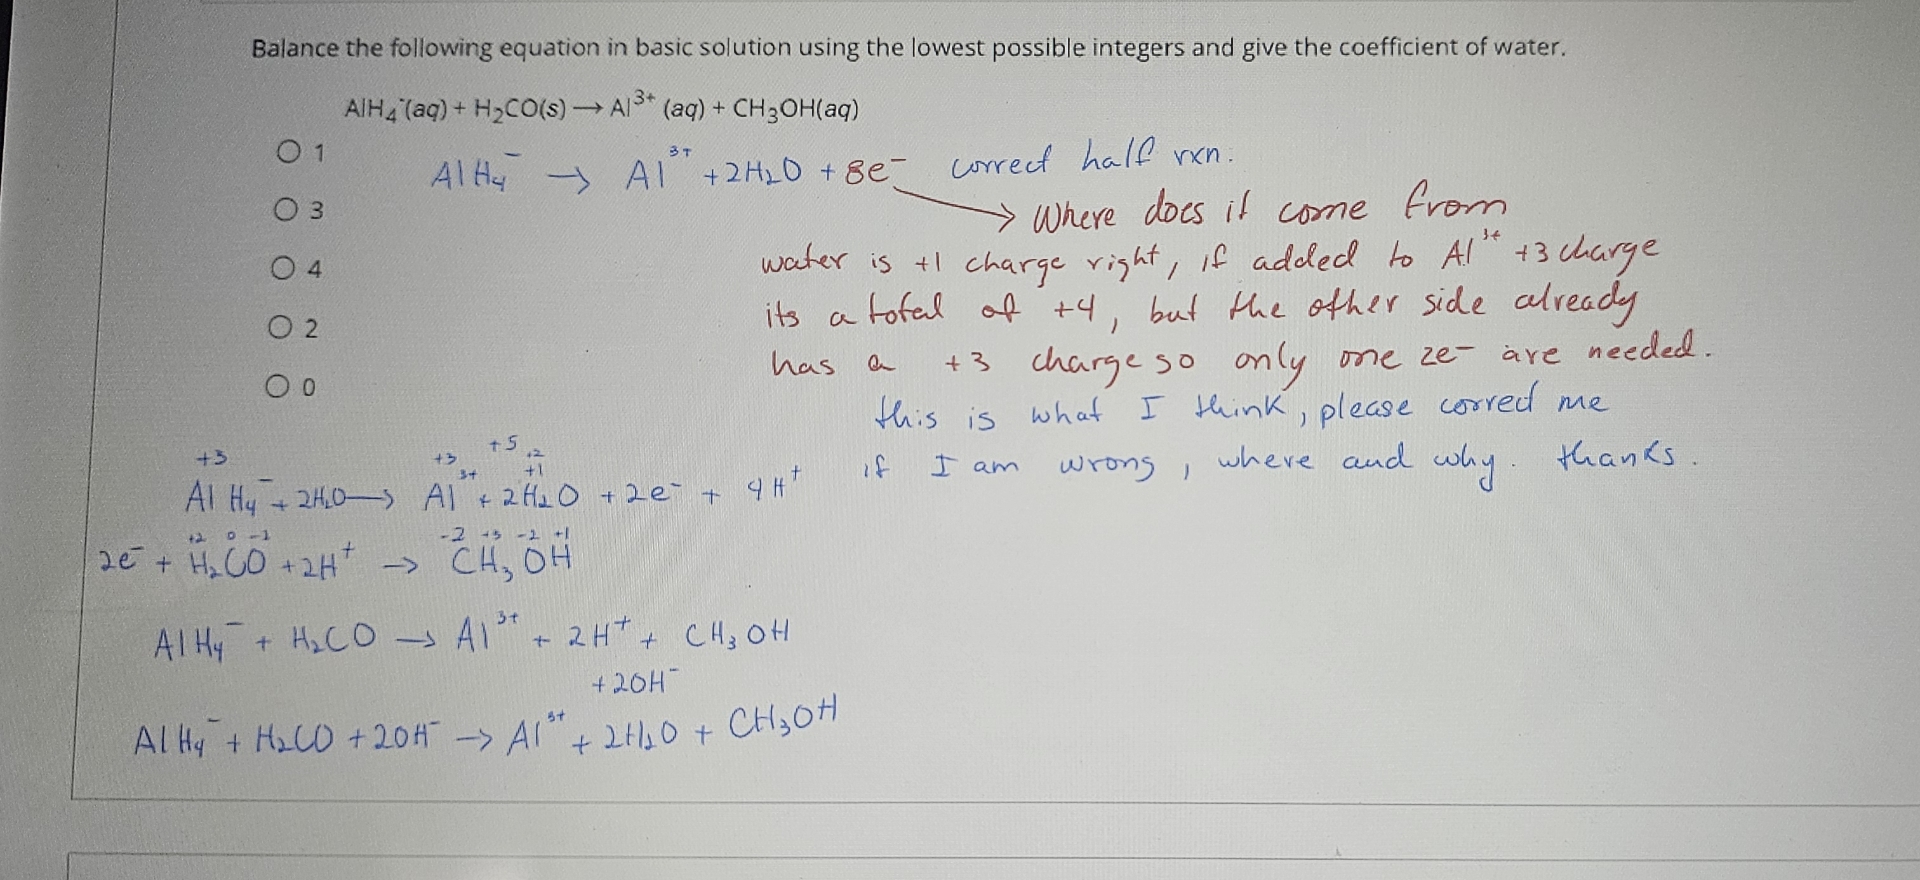 Balance the following equation in basic solution using the lowest possible integers and give the coefficient of water.
AlH₄⁻(aq) + H₂CO(s) → Al³⁺ (aq) + CH₃OH(aq)
1
AlH₄⁻ → Al³⁺ + 2H₂O + 8e⁻ correct half rxn.
3
→ Where does it come from
4
water is +1 charge right, if added to Al³⁺ +3 charge
2
its a total of +4, but the other side already
0
has a +3 charge so only one 2e⁻ are needed.
this is what I think, please correct me
if I am wrong, where and why. thanks.
+3 +3 +5 +1
AlH₄⁻ + 2H₂O → Al³⁺ + 2H₂O + 2e⁻ + 4H⁺
+2 0 -2 -2 +3 -2 +1
2e⁻ + H₂CO + 2H⁺ → CH₃OH
AlH₄⁻ + H₂CO → Al³⁺ + 2H⁺ + CH₃OH
+2OH⁻
AlH₄⁻ + H₂CO + 2OH⁻ → Al³⁺ + 2H₂O + CH₃OH